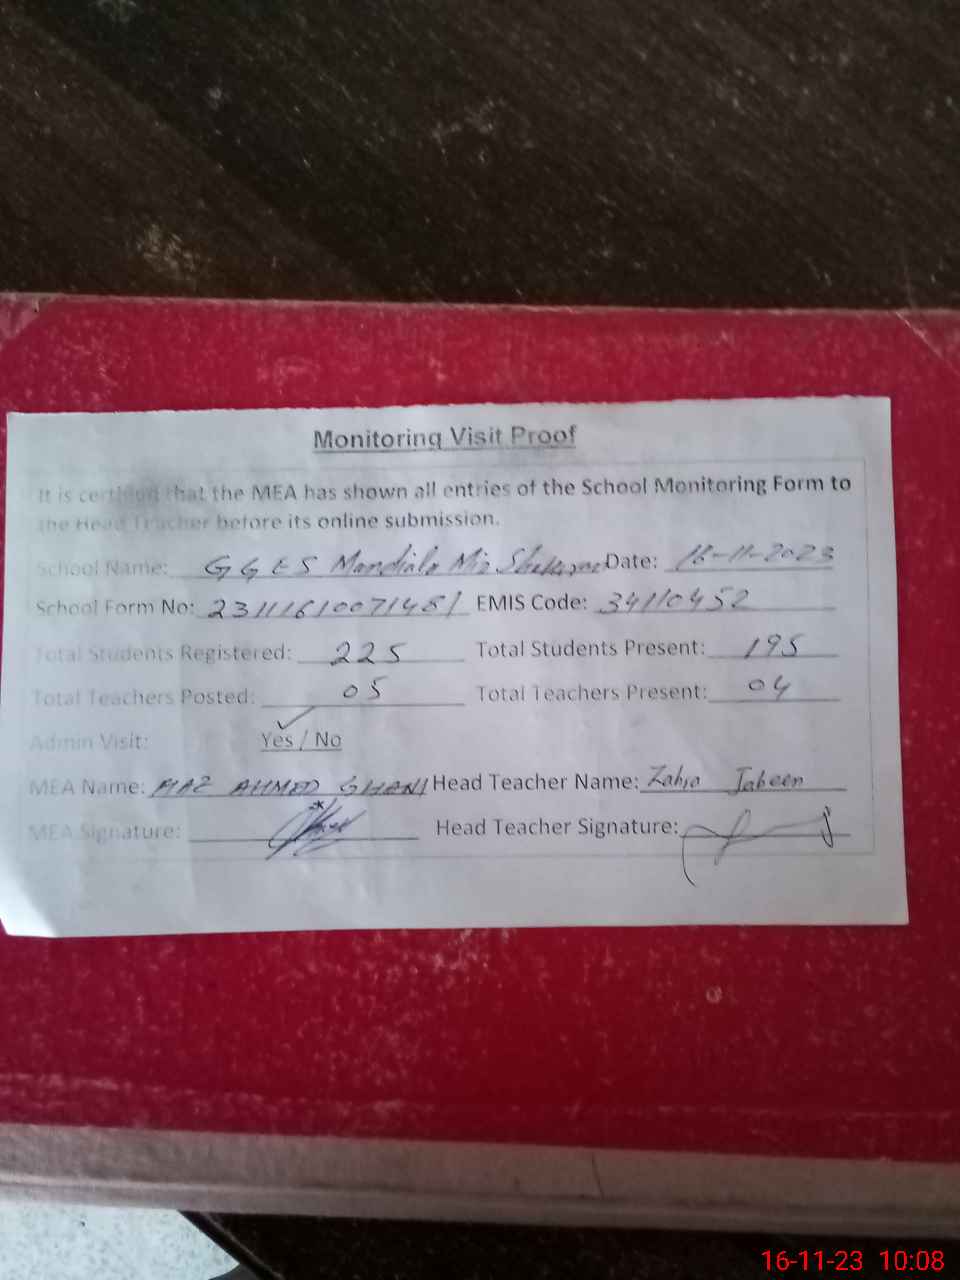 Monitoring Visit Proof
It is certified that the MEA has shown all entries of the School Monitoring Form to
the Head Teacher before its online submission.
School Name: GGES Mandiala Mir Date: 16-11-2023
School Form No: EMIS Code: 34110452
Total Students Registered: 225 Total Students Present: 195
Total Teachers Posted: 05 Total Teachers Present: 04
Admin Visit: Yes / No
MEA Name: AHMED GHANI Head Teacher Name: Zahra Jabeen
MEA Signature: Head Teacher Signature:
16-11-23 10:08